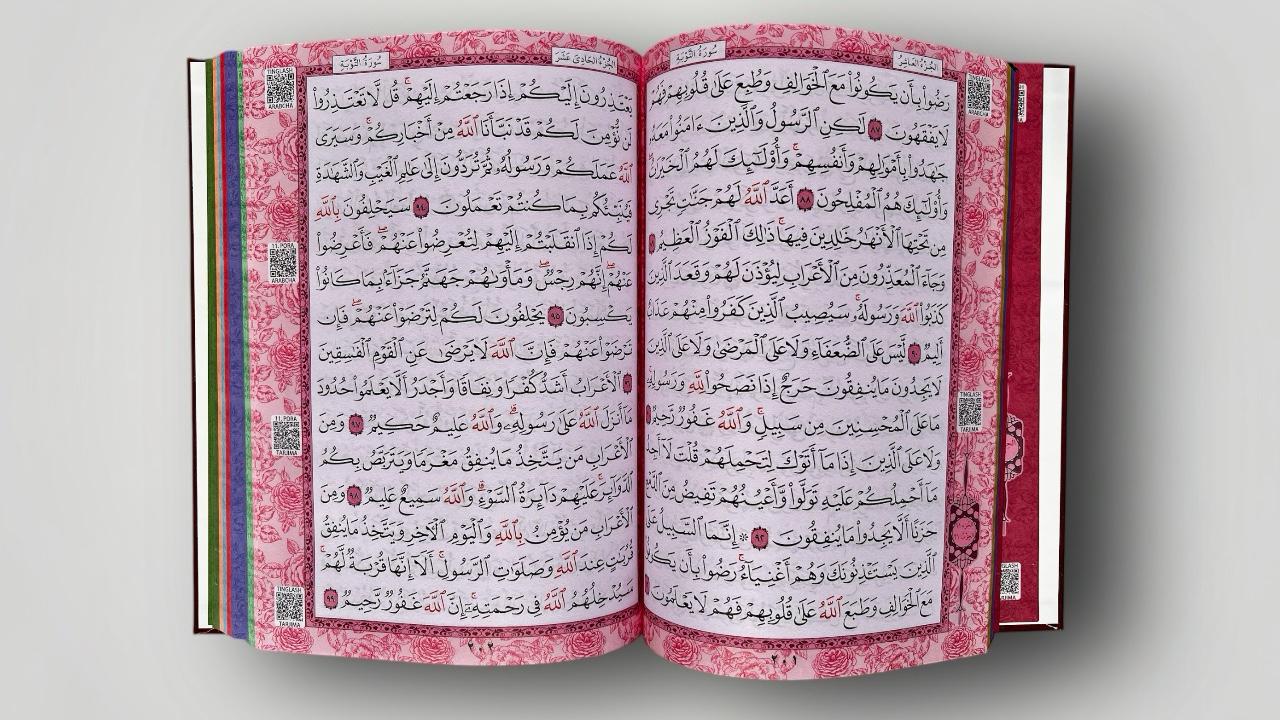 الجُزْءُ العَاشِرُ
سُورَةُ التَّوْبَةِ
TINGLASH
ARABCHA
رَضُوا۟ بِأَن يَكُونُوا۟ مَعَ ٱلْخَوَالِفِ وَطُبِعَ عَلَىٰ قُلُوبِهِمْ فَهُمْ
لَا يَفْقَهُونَ ٨٧ لَٰكِنِ ٱلرَّسُولُ وَٱلَّذِينَ ءَامَنُوا۟ مَعَهُۥ
جَٰهَدُوا۟ بِأَمْوَٰلِهِمْ وَأَنفُسِهِمْ ۚ وَأُو۟لَٰٓئِكَ لَهُمُ ٱلْخَيْرَٰتُ
وَأُو۟لَٰٓئِكَ هُمُ ٱلْمُفْلِحُونَ ٨٨ أَعَدَّ ٱللَّهُ لَهُمْ جَنَّٰتٍ تَجْرِى
مِن تَحْتِهَا ٱلْأَنْهَٰرُ خَٰلِدِينَ فِيهَا ۚ ذَٰلِكَ ٱلْفَوْزُ ٱلْعَظِيمُ
وَجَآءَ ٱلْمُعَذِّرُونَ مِنَ ٱلْأَعْرَابِ لِيُؤْذَنَ لَهُمْ وَقَعَدَ ٱلَّذِينَ
كَذَبُوا۟ ٱللَّهَ وَرَسُولَهُۥ ۚ سَيُصِيبُ ٱلَّذِينَ كَفَرُوا۟ مِنْهُمْ عَذَابٌ
أَلِيمٌ ٩٠ لَّيْسَ عَلَى ٱلضُّعَفَآءِ وَلَا عَلَى ٱلْمَرْضَىٰ وَلَا عَلَى ٱلَّذِينَ
لَا يَجِدُونَ مَا يُنفِقُونَ حَرَجٌ إِذَا نَصَحُوا۟ لِلَّهِ وَرَسُولِهِۦ
مَا عَلَى ٱلْمُحْسِنِينَ مِن سَبِيلٍ ۚ وَٱللَّهُ غَفُورٌ رَّحِيمٌ
وَلَا عَلَى ٱلَّذِينَ إِذَا مَآ أَتَوْكَ لِتَحْمِلَهُمْ قُلْتَ لَآ أَجِدُ
مَآ أَحْمِلُكُمْ عَلَيْهِ تَوَلَّوا۟ وَّأَعْيُنُهُمْ تَفِيضُ مِنَ ٱلدَّمْعِ
حَزَنًا أَلَّا يَجِدُوا۟ مَا يُنفِقُونَ ٩٢ ۞ إِنَّمَا ٱلسَّبِيلُ عَلَى
ٱلَّذِينَ يَسْتَـْٔذِنُونَكَ وَهُمْ أَغْنِيَآءُ ۚ رَضُوا۟ بِأَن يَكُونُوا۟
مَعَ ٱلْخَوَالِفِ وَطَبَعَ ٱللَّهُ عَلَىٰ قُلُوبِهِمْ فَهُمْ لَا يَعْلَمُونَ
TINGLASH
TARJIMA
٢٠١
الجُزْءُ الحَادِىَ عَشَرَ
سُورَةُ التَّوْبَةِ
يَعْتَذِرُونَ إِلَيْكُمْ إِذَا رَجَعْتُمْ إِلَيْهِمْ ۚ قُل لَّا تَعْتَذِرُوا۟
لَن نُّؤْمِنَ لَكُمْ قَدْ نَبَّأَنَا ٱللَّهُ مِنْ أَخْبَارِكُمْ ۚ وَسَيَرَى
ٱللَّهُ عَمَلَكُمْ وَرَسُولُهُۥ ثُمَّ تُرَدُّونَ إِلَىٰ عَٰلِمِ ٱلْغَيْبِ وَٱلشَّهَٰدَةِ
فَيُنَبِّئُكُم بِمَا كُنتُمْ تَعْمَلُونَ ٩٤ سَيَحْلِفُونَ بِٱللَّهِ
لَكُمْ إِذَا ٱنقَلَبْتُمْ إِلَيْهِمْ لِتُعْرِضُوا۟ عَنْهُمْ ۖ فَأَعْرِضُوا۟
عَنْهُمْ ۖ إِنَّهُمْ رِجْسٌ ۖ وَمَأْوَىٰهُمْ جَهَنَّمُ جَزَآءًۢ بِمَا كَانُوا۟
يَكْسِبُونَ ٩٥ يَحْلِفُونَ لَكُمْ لِتَرْضَوْا۟ عَنْهُمْ ۖ فَإِن
تَرْضَوْا۟ عَنْهُمْ فَإِنَّ ٱللَّهَ لَا يَرْضَىٰ عَنِ ٱلْقَوْمِ ٱلْفَٰسِقِينَ
٩٦ ٱلْأَعْرَابُ أَشَدُّ كُفْرًا وَنِفَاقًا وَأَجْدَرُ أَلَّا يَعْلَمُوا۟ حُدُودَ
مَآ أَنزَلَ ٱللَّهُ عَلَىٰ رَسُولِهِۦ ۗ وَٱللَّهُ عَلِيمٌ حَكِيمٌ ٩٧ وَمِنَ
ٱلْأَعْرَابِ مَن يَتَّخِذُ مَا يُنفِقُ مَغْرَمًا وَيَتَرَبَّصُ بِكُمُ
ٱلدَّوَآئِرَ ۚ عَلَيْهِمْ دَآئِرَةُ ٱلسَّوْءِ ۗ وَٱللَّهُ سَمِيعٌ عَلِيمٌ ٩٨ وَمِنَ
ٱلْأَعْرَابِ مَن يُؤْمِنُ بِٱللَّهِ وَٱلْيَوْمِ ٱلْءَاخِرِ وَيَتَّخِذُ مَا يُنفِقُ
قُرُبَٰتٍ عِندَ ٱللَّهِ وَصَلَوَٰتِ ٱلرَّسُولِ ۚ أَلَآ إِنَّهَا قُرْبَةٌ لَّهُمْ ۚ
سَيُدْخِلُهُمُ ٱللَّهُ فِى رَحْمَتِهِۦٓ ۗ إِنَّ ٱللَّهَ غَفُورٌ رَّحِيمٌ ٩٩
TINGLASH
ARABCHA
11. PORA
ARABCHA
11. PORA
TARJIMA
TINGLASH
TARJIMA
٢٠٢